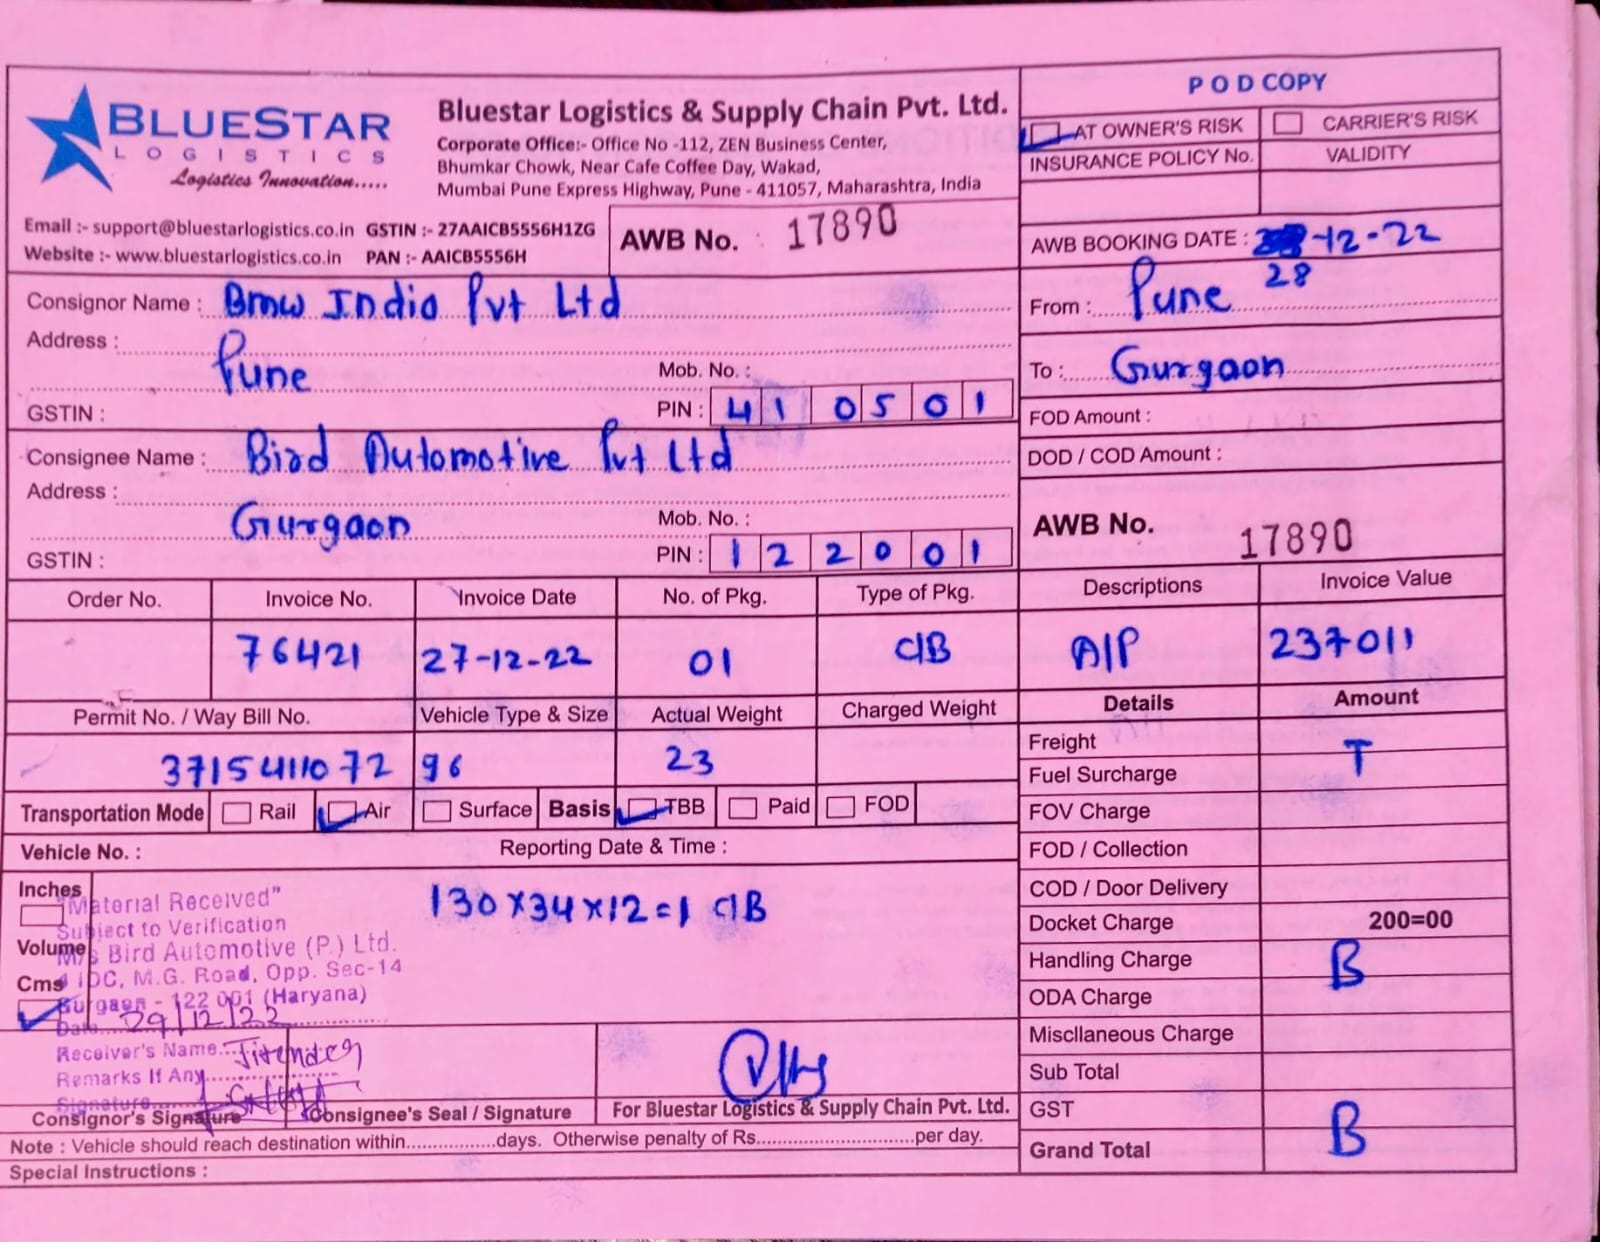 BLUESTAR
LOGISTICS
Logistics Innovation.....
Bluestar Logistics & Supply Chain Pvt. Ltd.
Corporate Office:- Office No -112, ZEN Business Center,
Bhumkar Chowk, Near Cafe Coffee Day, Wakad,
Mumbai Pune Express Highway, Pune - 411057, Maharashtra, India
Email :- support@bluestarlogistics.co.in GSTIN :- 27AAICB5556H1ZG
Website :- www.bluestarlogistics.co.in PAN :- AAICB5556H
AWB No. : 17890
POD COPY
AT OWNER'S RISK CARRIER'S RISK
INSURANCE POLICY No. VALIDITY
AWB BOOKING DATE : -12-22
28
Consignor Name : Bmw India Pvt Ltd
Address :
Pune
Mob. No. :
GSTIN : PIN : 410501
From : Pune
To : Gurgaon
FOD Amount :
DOD / COD Amount :
Consignee Name : Bird Automotive Pvt Ltd
Address :
Gurgaon
Mob. No. :
GSTIN : PIN : 122001
AWB No. 17890
Order No. Invoice No. Invoice Date No. of Pkg. Type of Pkg. Descriptions Invoice Value
76421 27-12-22 01 C/B A/P 237011
Permit No. / Way Bill No. Vehicle Type & Size Actual Weight Charged Weight Details Amount
37154111072 96 23
Transportation Mode Rail Air Surface Basis TBB Paid FOD
Vehicle No. : Reporting Date & Time :
Inches
Volume
Cms
130x34x12=1 C/B
"Material Received"
Subject to Verification
M/s Bird Automotive (P.) Ltd.
IDC, M.G. Road, Opp. Sec-14
Gurgaon - 122 001 (Haryana)
Date 29/12/22
Receiver's Name Jitender
Remarks If Any
Signature
Consignor's Signature Consignee's Seal / Signature For Bluestar Logistics & Supply Chain Pvt. Ltd.
Note : Vehicle should reach destination within................days. Otherwise penalty of Rs.............................per day.
Special Instructions :
Freight T
Fuel Surcharge
FOV Charge
FOD / Collection
COD / Door Delivery
Docket Charge 200=00
Handling Charge B
ODA Charge
Miscllaneous Charge
Sub Total
GST B
Grand Total